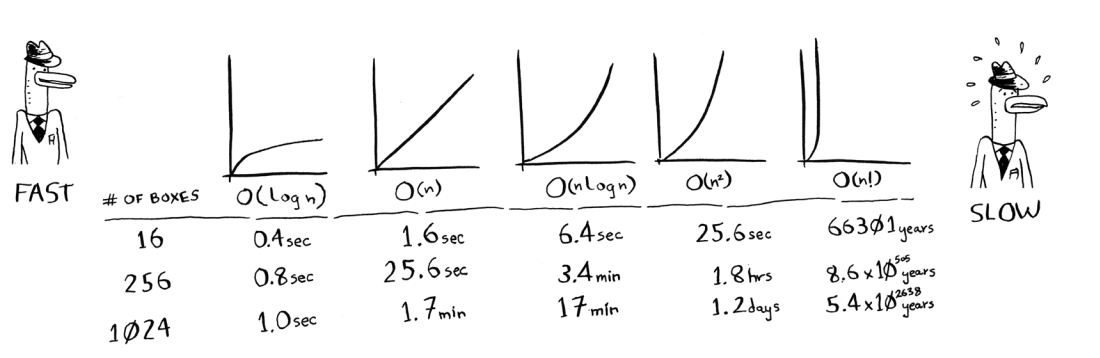 FAST
SLOW
# OF BOXES O(log n) O(n) O(n log n) O(n²) O(n!)
16 0.4sec 1.6sec 6.4sec 25.6sec 66301years
256 0.8sec 25.6sec 3.4min 1.8hrs 8.6x10⁵⁰⁵years
1024 1.0sec 1.7min 17min 1.2days 5.4x10²⁶³⁸years
A
A